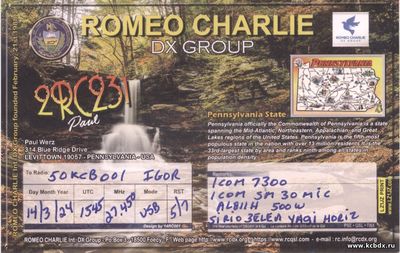 ROMEO CHARLIE
DX GROUP
ROMEO CHARLIE
DX GROUP
ROMEO CHARLIE INT. DX Group founded February, 21st 1986
2RC231
Paul
PENNSYLVANIA
Paul Werz
314 Blue Ridge Drive
LEVITTOWN 19057 - PENNSYLVANIA - USA
Pennsylvania State
Pennsylvania officially the Commonwealth of Pennsylvania is a state
spanning the Mid-Atlantic, Northeastern, Appalachian, and Great
Lakes regions of the United States. Pennsylvania is the fifth most
populous state in the nation with over 13 million residents. It is the
33rd-largest state by area and ranks ninth among all states in
population density
To Radio: 50KCB001 IGOR
Day Month Year UTC MHz Mode RST
14/3/24 1545 27.450 USB 5/7
ICOM 7300
ICOM SM 30 MIC
AL811H 500W
SIRIO 3ELEM YAGI HORIZ
PSE - QSL - TNX
ROMEO CHARLIE Int. DX Group - Po Box 3 - 18500 Foëcy - F - Web page http://www.rcdx.org https://www.rcqsl.com - e.mail : rc.info@rcdx.org
www.kcbdx.ru